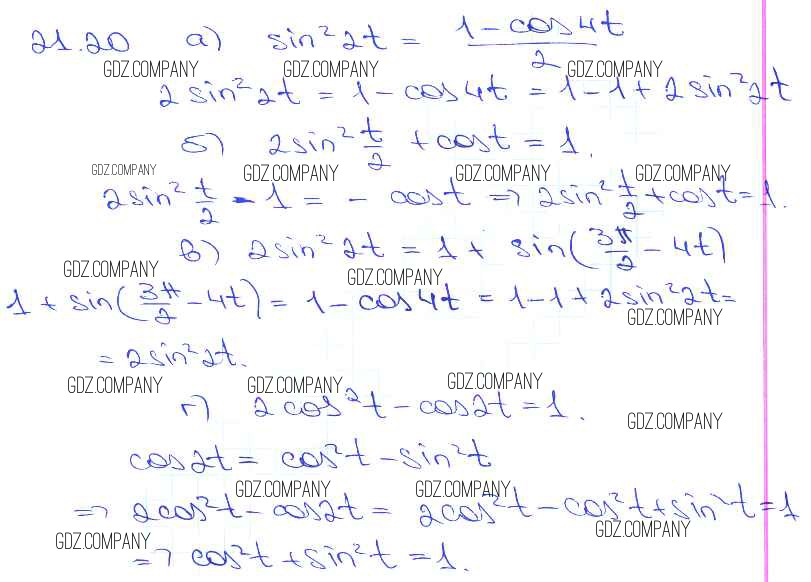 21.20 а) sin² 2t = (1 - cos 4t)/2
GDZ.COMPANY GDZ.COMPANY GDZ.COMPANY
2 sin² 2t = 1 - cos 4t = 1 - 1 + 2 sin² 2t
б) 2 sin² t/2 + cos t = 1.
GDZ.COMPANY GDZ.COMPANY GDZ.COMPANY GDZ.COMPANY
2 sin² t/2 - 1 = - cos t => 2 sin² t/2 + cos t = 1.
в) 2 sin² 2t = 1 + sin(3π/2 - 4t)
GDZ.COMPANY GDZ.COMPANY
1 + sin(3π/2 - 4t) = 1 - cos 4t = 1 - 1 + 2 sin² 2t =
GDZ.COMPANY
= 2 sin² 2t.
GDZ.COMPANY GDZ.COMPANY GDZ.COMPANY
г) 2 cos² t - cos 2t = 1.
GDZ.COMPANY
cos 2t = cos² t - sin² t
GDZ.COMPANY GDZ.COMPANY
=> 2 cos² t - cos 2t = 2 cos² t - cos² t + sin² t = 1
GDZ.COMPANY GDZ.COMPANY
=> cos² t + sin² t = 1.